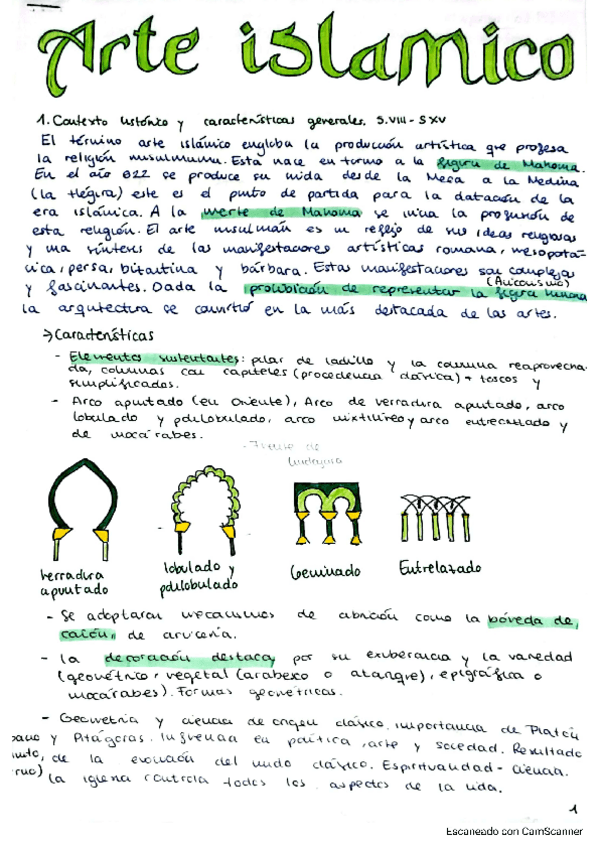 Arte islamico
1. Contexto histórico y características generales. S.VIII - S XV
El término arte islámico engloba la producción artística que profesa
la religión musulmana. Esta nace en torno a la figura de Mahoma.
En el año 622 se produce su huida desde la Meca a la Medina
(la Hégira) este es el punto de partida para la datación de la
era islámica. A la muerte de Mahoma se inicia la profusión de
esta religión. El arte musulmán es un reflejo de sus ideas religiosas
y una síntesis de las manifestaciones artísticas romana, mesopotá-
mica, persa, bizantina y bárbara. Estas manifestaciones son complejas
y fascinantes. Dada la prohibición de representar la figura humana
(Aniconismo)
la arquitectura se convirtió en la más destacada de las artes.
→ Características
- Elementos sustentantes: pilar de ladrillo y la columna reaprovecha-
da, columnas con capiteles (procedencia clásica) + toscos y
simplificados.
- Arco apuntado (en Oriente), Arco de herradura apuntado, arco
lobulado y polilobulado, arco mixtilíneo y arco entrecruzado y
de mocárabes.
herradura
apuntado
lobulado y
polilobulado
Geminado
Entrelazado
- Se adoptaron mecanismos de cubrición como la bóveda de
cañón, de crucería.
- la decoración destaca por su exuberancia y la variedad
(geométrico, vegetal (arabesco o ataurique), epigráfica o
mocárabes). Formas geométricas.
- Geometría y ciencia de origen clásico. importancia de Platón
y Pitágoras. Influencia en política, arte y sociedad. Resultado
de la evolución del mundo clásico. Espiritualidad - ciencia.
la iglesia controla todos los aspectos de la vida.
1
Escaneado con CamScanner